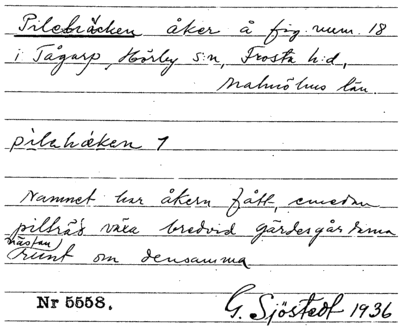 Pilebräcken åker å fig. num. 18
i Tågarp, Hörby s:n, Frosta h:d,
Malmöhus län.
pilabräken 1
Namnet har åkern fått, emedan
pilträs växa bredvid gärdesgårdarna
(nästan)
runt om densamma
Nr 5558.
G. Sjöstedt 1936